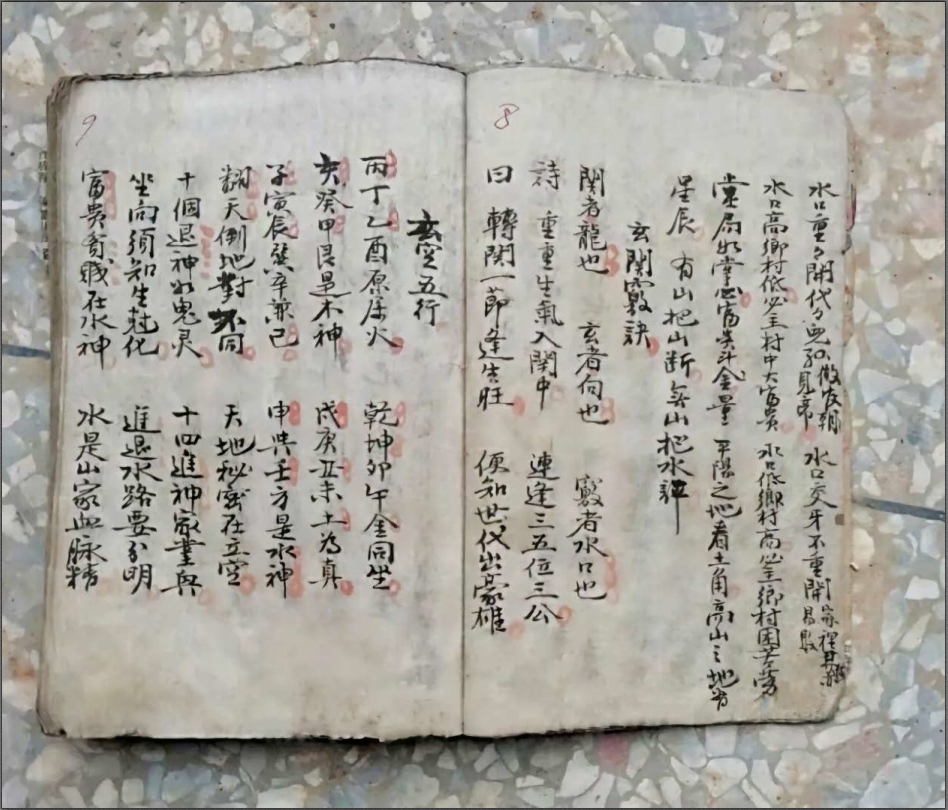 8
水口重重開代分免孤見帝做官朝 水口交牙不重開家裡
水口高鄉村低必主村中大富貴 水口低鄉村高必主鄉村困苦勞
堂局水掌心富貴斗金量 平陽之地看土角高山之地看
星辰 有山把山斷無山把水評
玄關竅訣
関者龍也 玄者向也 竅者水口也
詩 重重生氣入関中 連逢三五位三公
曰 轉関一節逢生旺 便知世代出豪雄
9
玄空五行
丙丁乙酉原屬火 乾坤卯午金同坐
亥癸甲艮是木神 戌庚丑未土為真
子寅辰巽辛兼己 申與壬方是水神
翻天倒地對不同 天地秘密在立空
十個退神如鬼灵 十四進神家業興
坐向須知生尅化 進退水路要分明
富貴貧賤在水神 水是山家血脉精